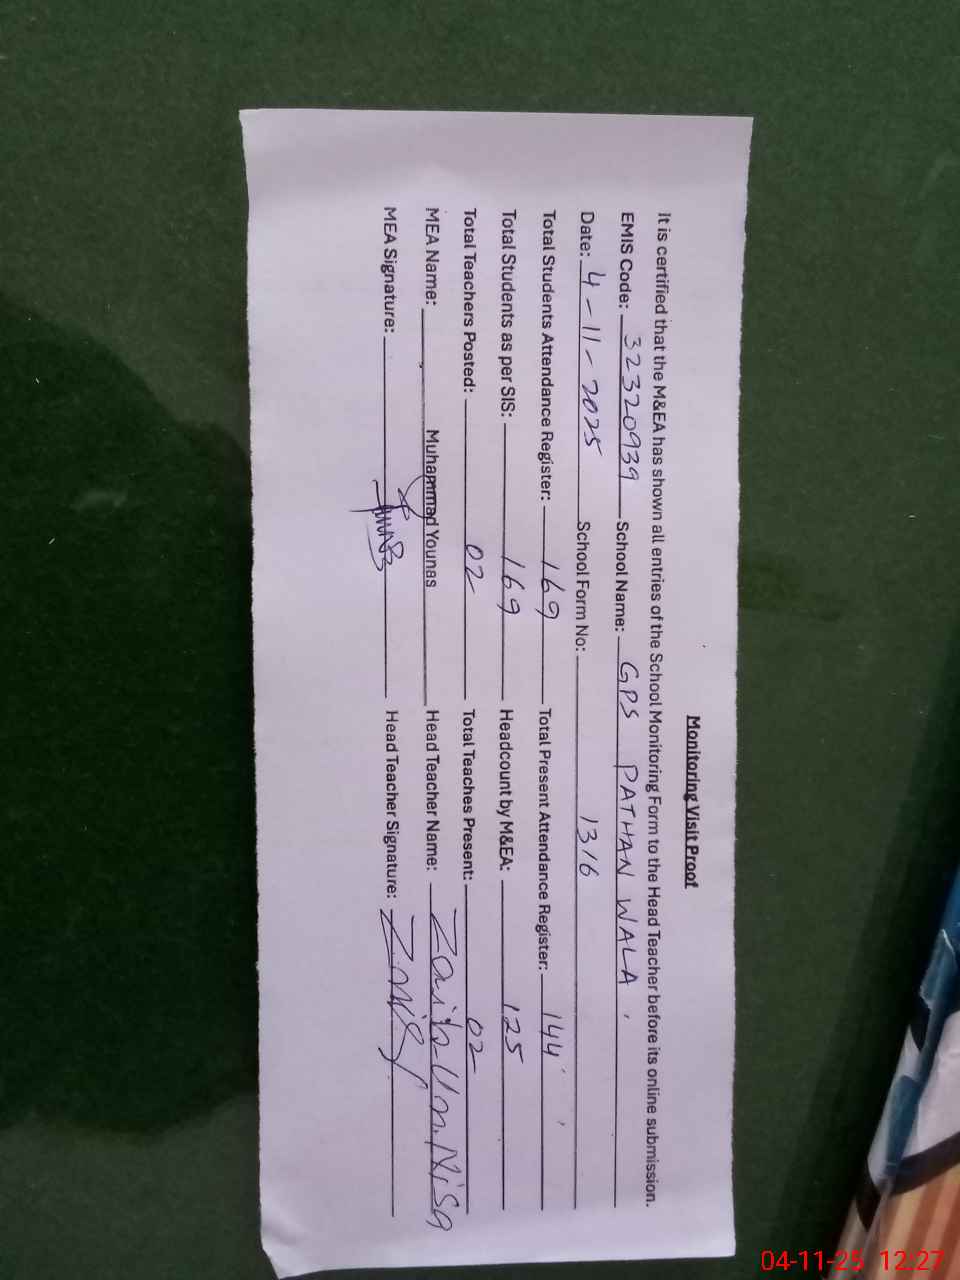 Monitoring Visit Proof
It is certified that the M&EA has shown all entries of the School Monitoring Form to the Head Teacher before its online submission.
EMIS Code: 32320939 School Name: GPS PATHAN WALA
Date: 4-11-2025 School Form No: 1316
Total Students Attendance Register: 169 Total Present Attendance Register: 144
Total Students as per SIS: 169 Headcount by M&EA: 125
Total Teachers Posted: 02 Total Teaches Present: 02
MEA Name: Muhammad Younas Head Teacher Name: Zaib-Un-Nisa
MEA Signature: Head Teacher Signature:
04-11-25 12:27